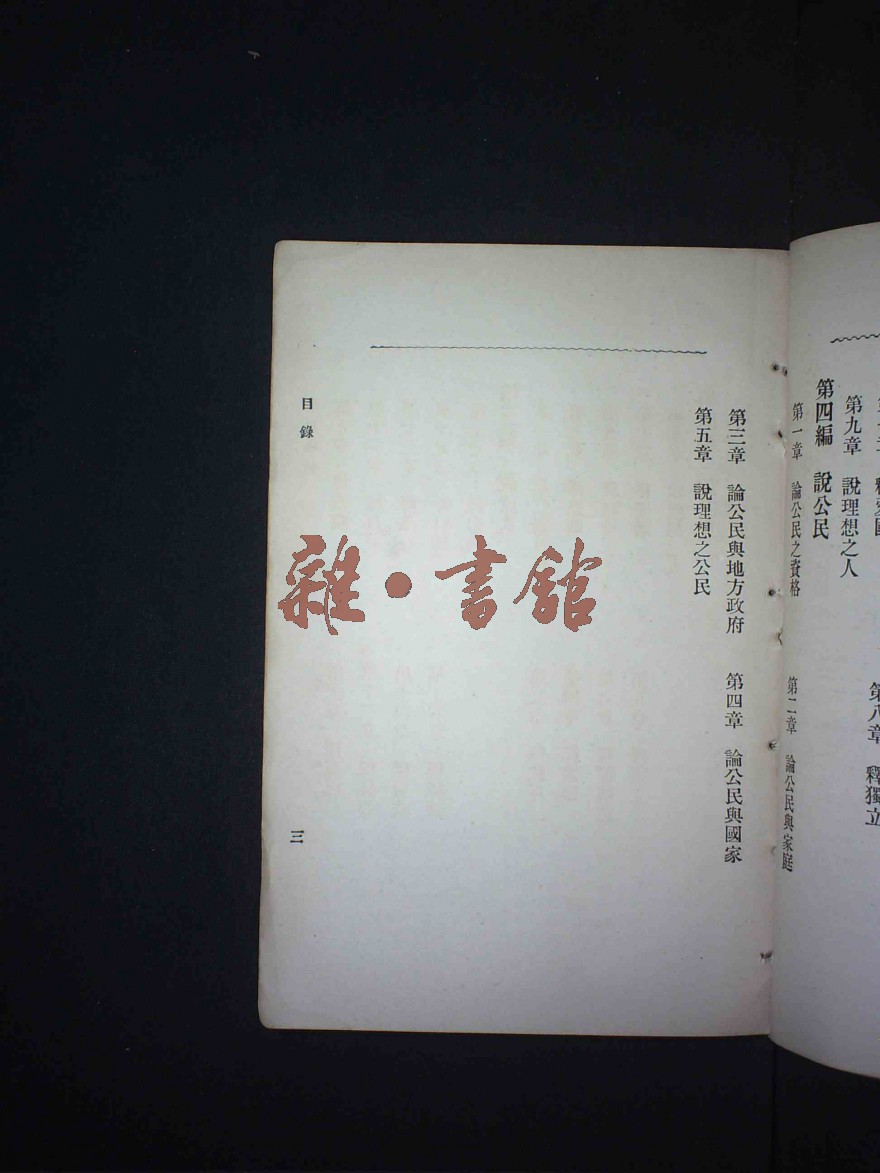 第八章　釋獨立
第九章　說理想之人
第四編　說公民
第一章　論公民之資格　第二章　論公民與家庭
第三章　論公民與地方政府　第四章　論公民與國家
第五章　說理想之公民
目錄
三
雜·書館